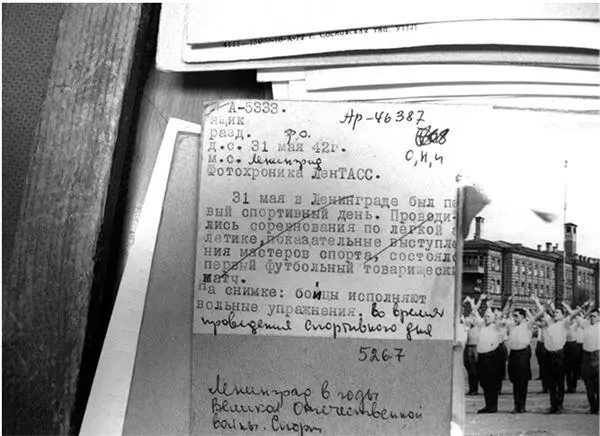 А-5333.
Ар-46387
ящик
разд. ф.о.
д.с. 31 мая 42г.
О, Н, и
м.с. Ленинград
Фотохроника ЛенТАСС.
31 мая в Ленинграде был пе
вый спортивный день. Проводи-
лись соревнования по легкой а
летике, показательные выступле
ния мастеров спорта, состоялс
первый футбольный товарищески
матч.
На снимке: бойцы исполняют
вольные упражнения. во время
проведения спортивного дня
5267
Ленинград в годы
Великой Отечественной
войны. Спорт